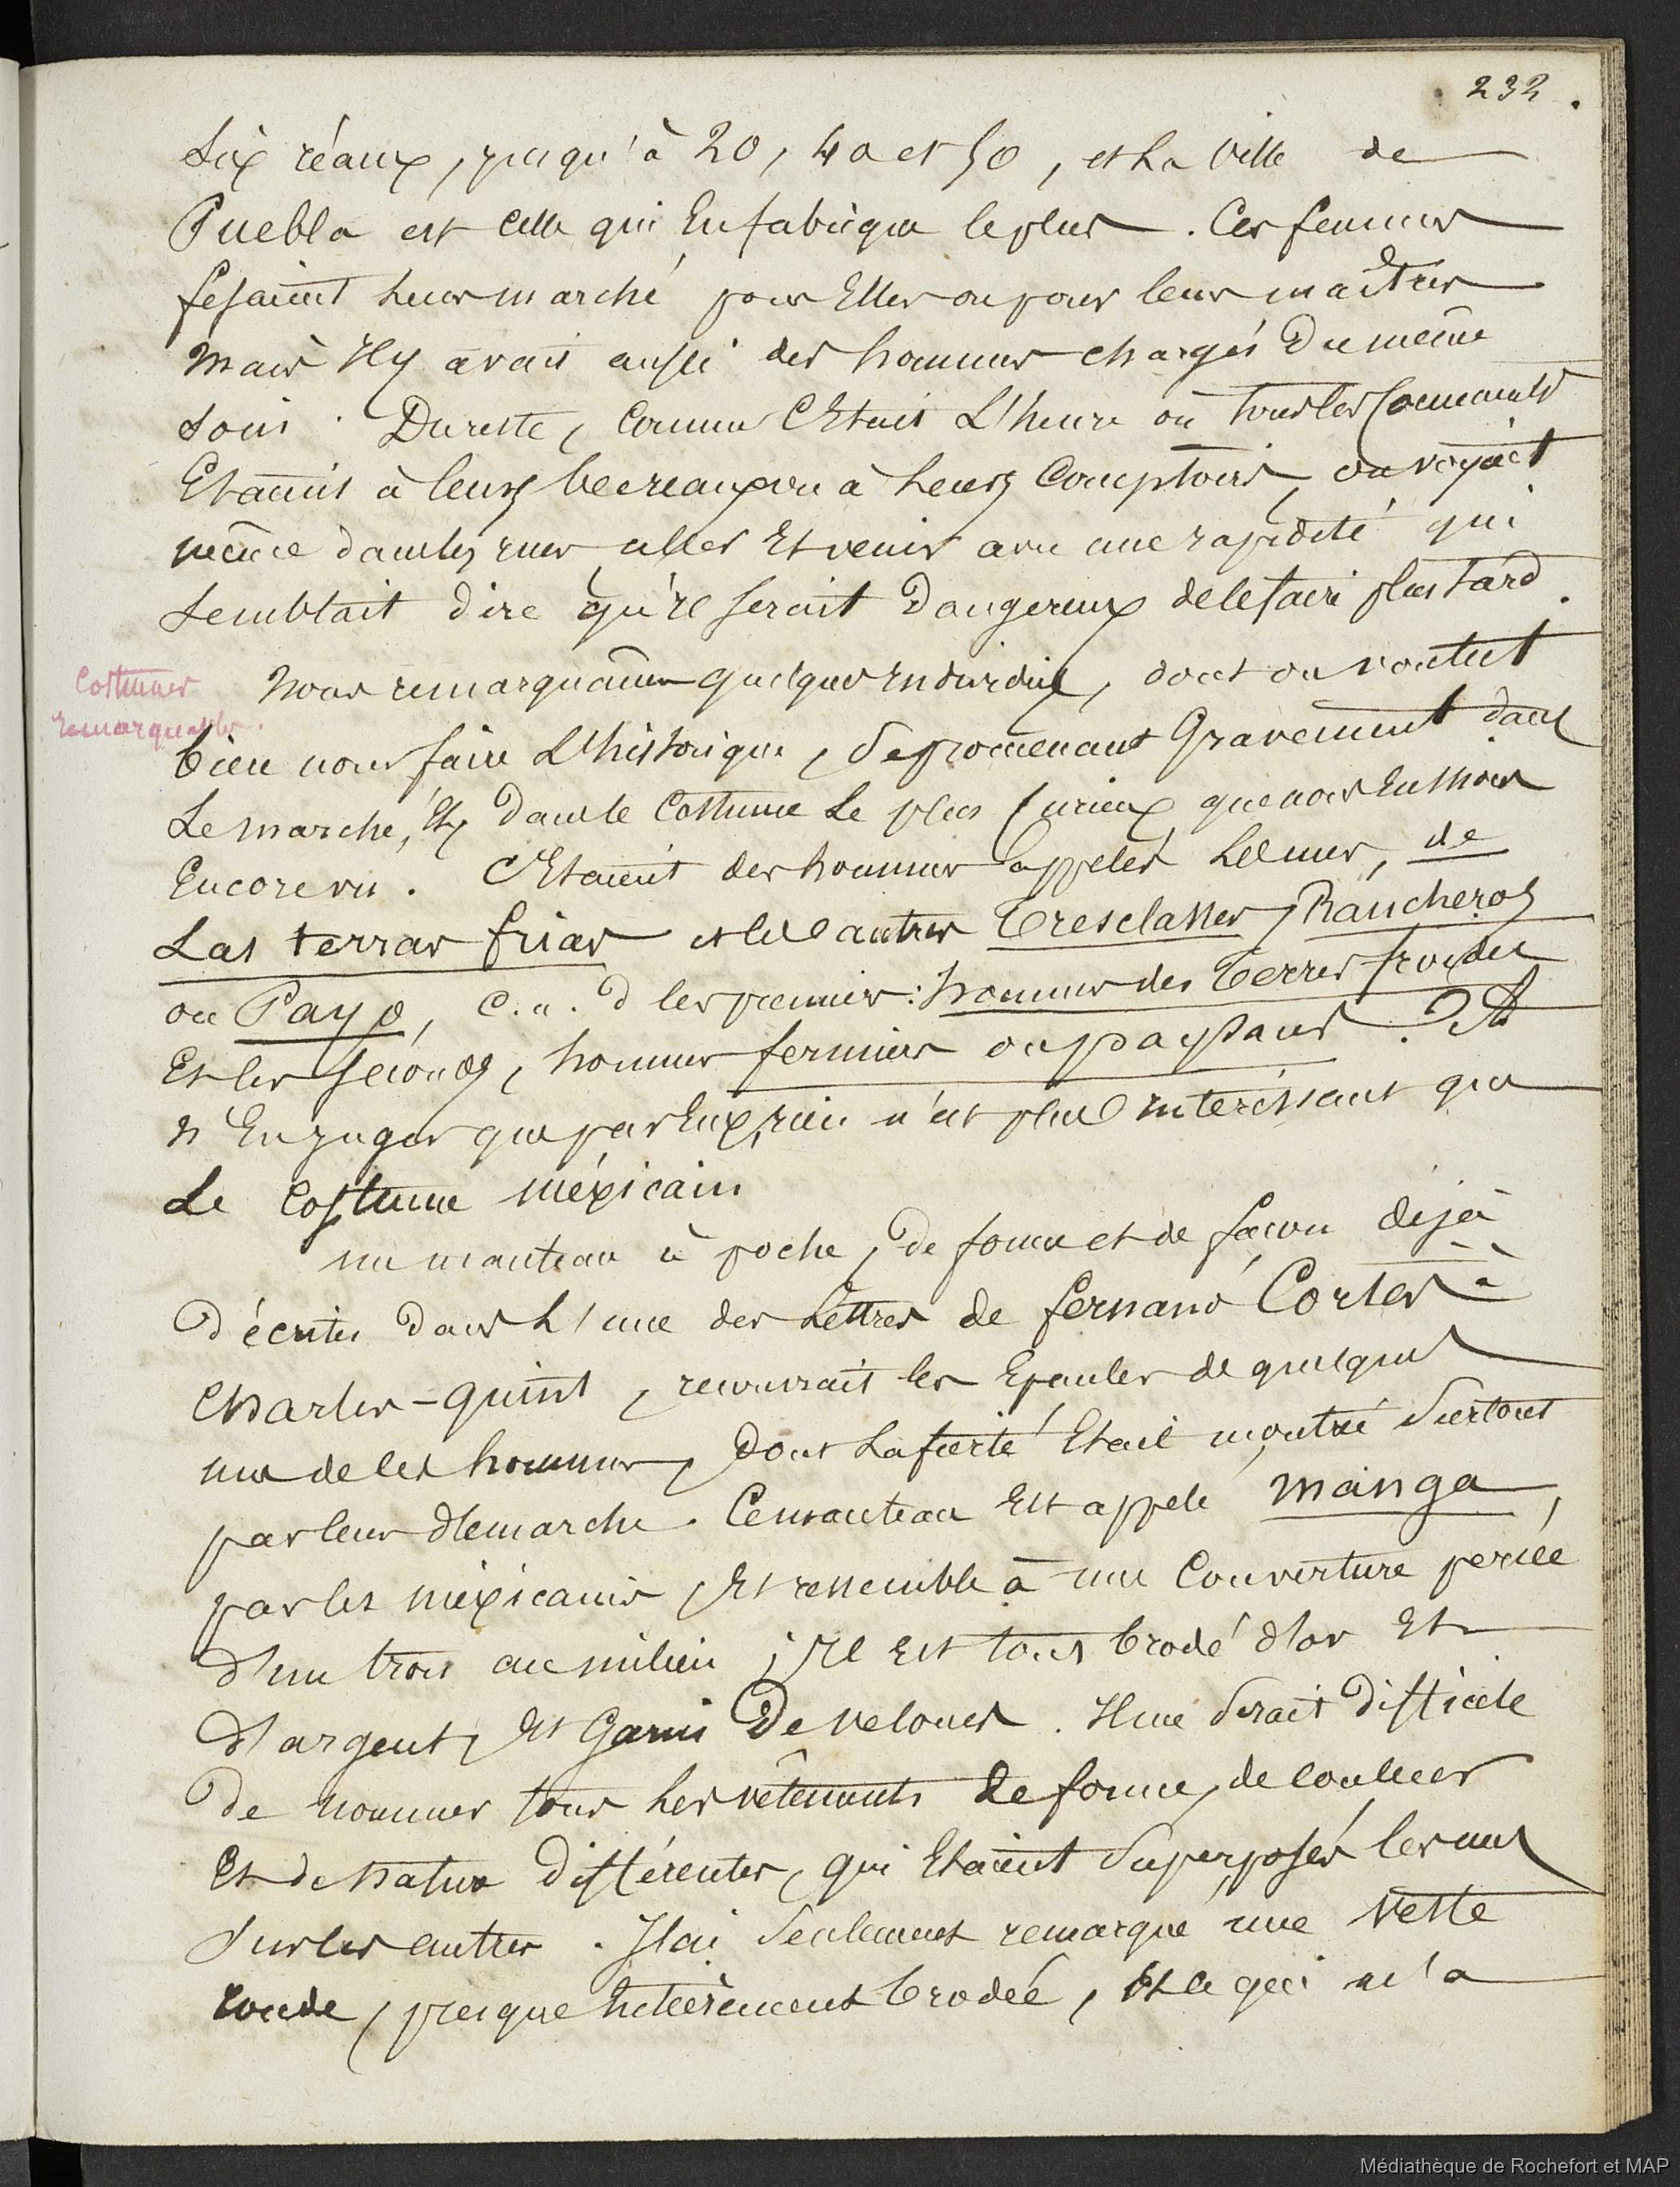 232.
six réaux, jusqu'à 20, 40 et 50, et La Ville de
Puebla est Celle qui En fabrique le plus. Ces femmes
fesaient Leur marché pour Elles ou pour leurs maîtres
Mais Il y avait aussi des hommes chargés Du même
soin. Dureste, Comme C'Etait L'heure où tous les
Etaient à leurs bureaux ou à Leurs Comptoirs, on voyait
même dans les rues aller Et venir avec une rapidité qui
semblait dire qu'Il serait Dangereux de le faire plus tard.
Costumes
remarquables.
Nous remarquames quelques Individus, dont on voulut
bien nous faire L'historique, Se promenant Gravement dans
Le marché, Et Dans le Costume Le plus Curieux que nous Eussions
Encore vu. C'Etaient des hommes appelés Les uns, de
Las terras frias et les autres Tresclasses, Rancheros
ou Payo, C.a.d les premiers: hommes des Terres froides
Et les Seconds, hommes fermiers ou paysans. Et
n'En juger que par Eux, rien n'est plus Interessant que
Le Costume Méxicain
un manteau à poche, De forme et de façon déjà
Décrites Dans L'une des Lettres de fernand Cortes à
Charles-quint, recouvrait les Epaules de quelques
uns de ces hommes, Dont La fierté Etait montrée Surtout
par leur démarche. Ce manteau Est appelé manga,
par les Méxicains, Et ressemble à une Couverture percée
d'un trou au milieu; Il est tout brodé d'or Et
d'argent, Et Garni De Velours. Il me Serait Difficile
De nommer tous Les vêtements de forme, de couleur
Et de Nature Différentes, qui Etaient Superposés les uns
Sur les autres. J'ai Seulement remarqué une Veste
ronde, presque Entièrement brodée, Et ce qui m'a
Médiathèque de Rochefort et MAP